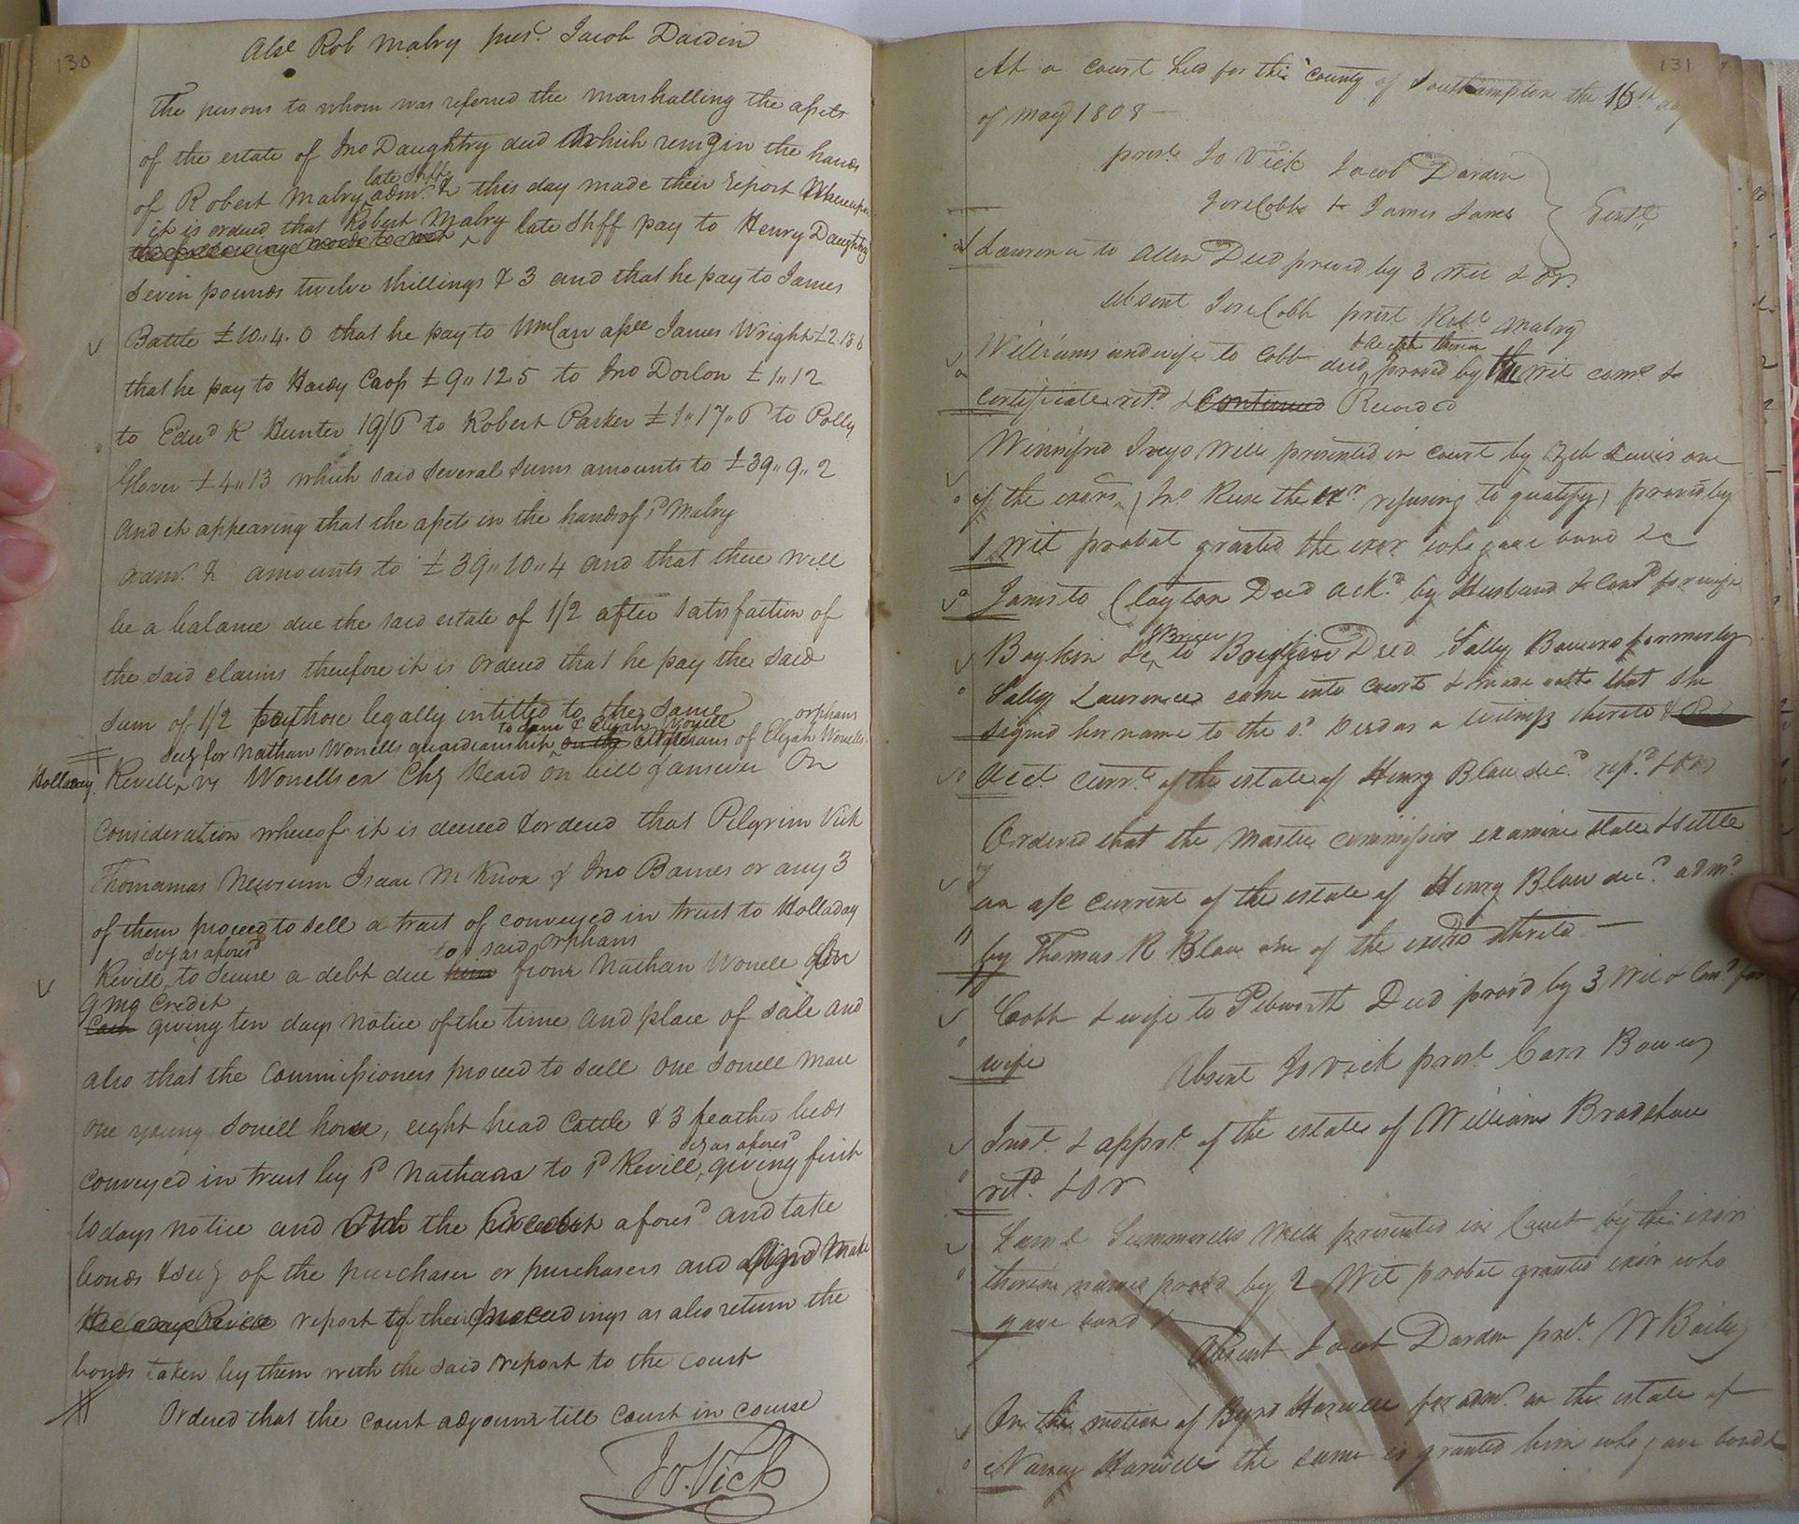 130
Abs.t Rob Mabry pres.t Jacob Darden
The persons to whom was refered the marshalling the assets
of the estate of Jno Daughtry decd which remain in the hands
of Robert Mabry late shff adm.r &c this day made their report Whereupon
it is ordered that Robert Mabry late Shff pay to Henry Daughtry
Seven pounds twelve shillings & 3 and that he pay to James
Battle £10,,4.0 that he pay to Wm Carr assee James Wright £2.18 6
that he pay to Hardy Crop £9,,12 5 to Jno Dorlon £1,,12
to Edw.d R Hunter 19/6 to Robert Parker £1,,17,,6 to Polly
Glover £4,,13 which said several sums amounts to £39,,9,,2
and it appearing that the assets in the hands of s.d Mabry
adm.r &c amounts to £39,,10,,4 and that there will
be a balance due the said estate of 1/2 after satisfaction of
the said claims therefore it is ordered that he pay the said
sum of 1/2 to those legally intitled to the same
Secy for Nathan Worrells guardianship to Jane & Elijah Worrell orphans of Elijah Worrell
Holladay Revill vs Worrells ex Chy Heard on bill & answer On
Consideration whereof it is decreed & ordered that Pilgrim Vick
Thomamas Newsum Isaac M Knox & Jno Barnes or any 3
of them proceed to sell a tract of conveyed in trust to Holladay
Revill secy as afores.d to secure a debt due to s said orphans from Nathan Worrell on
9 mo Credit giving ten days notice of the time and place of sale and
also that the Commissioners proceed to sell one sorrell mare
one young sorrell horse, eight head Cattle & 3 feather beds
conveyed in trust by s.d Nathan to s.d Revill secy as afores.d giving first
10 days notice and the Credit afores.d and take
bonds & secy of the purchaser or purchasers and make
report of their proceedings as also return the
bonds taken by them with the said report to the Court
Ordered that the court adjourn till Court in course
Jo. Vick
131
At a court held for the county of Southampton the 16th day
of May 1808
pres.t Jo Vick Jacob Darden
Jere Cobb & James Jones Gent,,
Lawrence to Allen Deed proved by 3 wit & Or
absent Jere Cobb pres.t Rob.t Mabry
Williams and wife to Cobb deed proved by the wit com.n &
certificate ret.d & Continued Recorded
Winnifred Iveys Will presented in court by Zeb Lewis one
of the exors (Jno Rose the ex.r refusing to qualify) proved by
1 Wit probat granted the exor who gave bond &c
Janes to Clayton Deed ack.d by Husband & Com.n for wife
Boykin &c to Deed Sally Bowers formerly
Sally Lawrence came into court & made oath that she
signed her name to the s.d Deed as a witness thereto &
Acct curr.t of the estate of Henry Blow dec.d rep.d & Or
Ordered that the Master commissioner examine state & settle
an a/c current of the estate of Henry Blow dec.d adm.d
by Thomas R Blow one of the exors thereto
Cobb & wife to Pebworth Deed prov'd by 3 Wit & Com.n for
wife
Absent Jo Vick pres.t Carr Bowers
Inv.t & appr.t of the estate of Williams Bradshaw
ret.d & Or
Saml Summerells Will presented in Court by the exor
therein named prov'd by 2 Wit probat granted exor who
gave bond &
Absent Jacob Darden pres.t W Bailey
On the motion of Byrd Harwell for adm.n on the estate of
Nancy Harwell the same is granted him who gave bond &